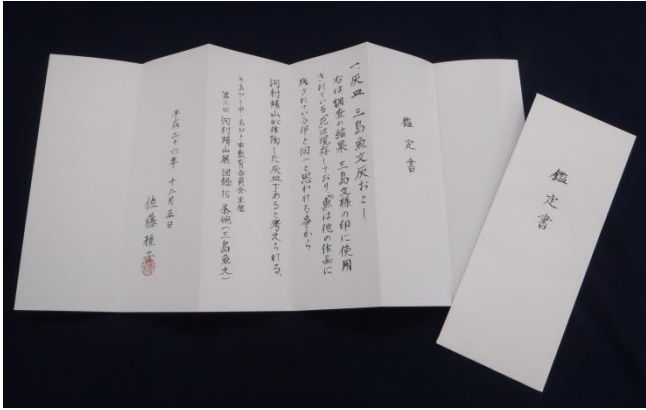 鑑定書
一、灰皿 三島魚文灰おとし
右は調査の結果 三島文様の印に使用
されている「花」は現存しており「魚」は他の作品に
残されている印と同一と思われる事から
河村蜻山が作陶した灰皿であると考えられる。
第六回 河村蜻山展 図録16 茶碗(三島魚文)
平成二十六年 十二月五日
佐藤雅
鑑定書